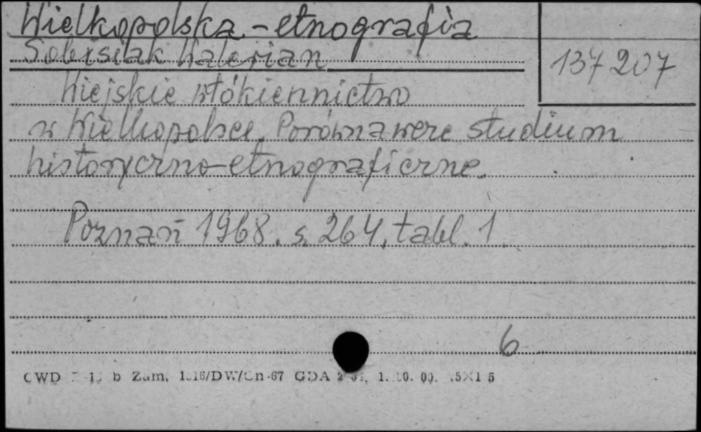 Wielkopolska - etnografia
Sobisiak Walerian
137 207
Wiejskie włókiennictwo
w Wielkopolsce. Porównawcze studium
historyczno-etnograficzne.
Poznań 1968. s. 264, tabl. 1.
6
CWD b Zam.